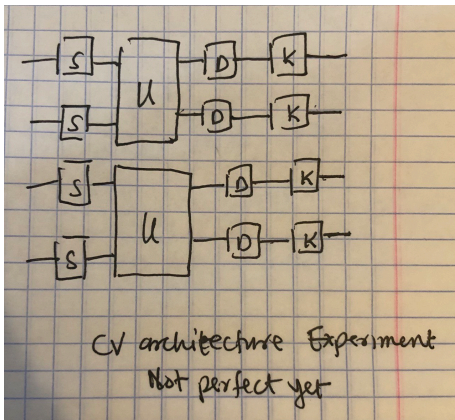 S U D K
S D K
S U D K
S D K
CV architecture Experiment
Not perfect yet